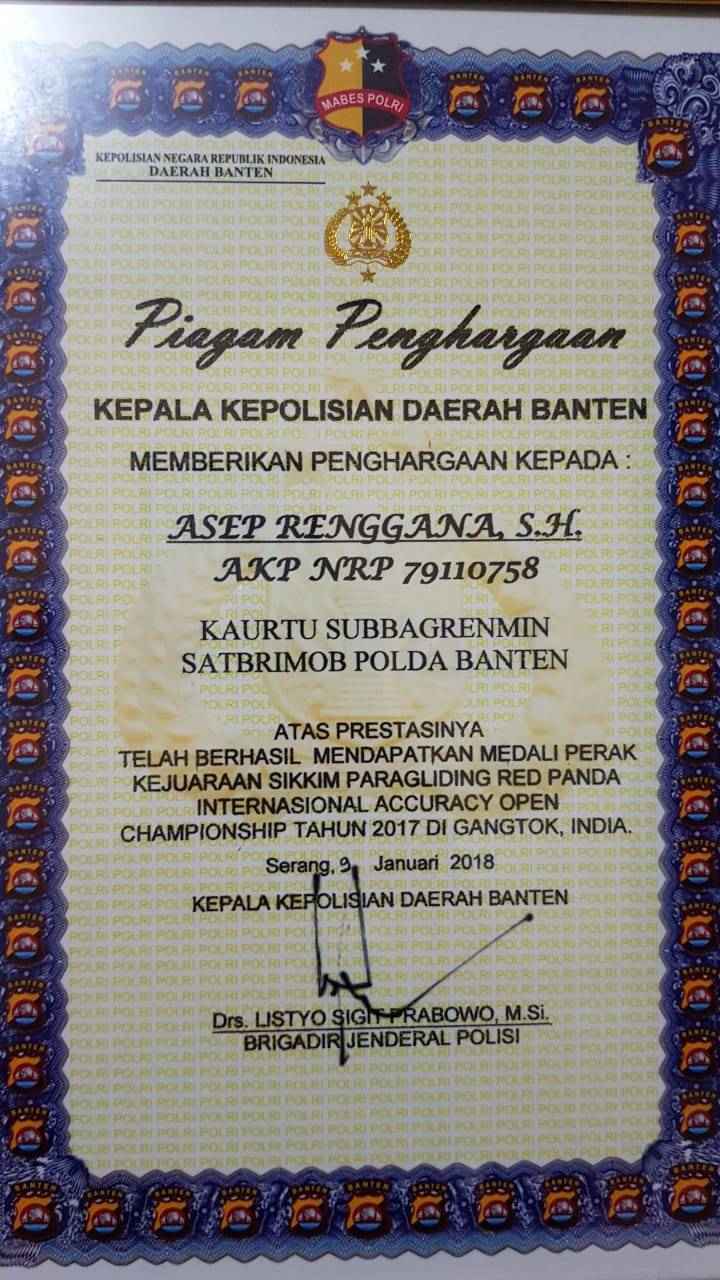 MABES POLRI
KEPOLISIAN NEGARA REPUBLIK INDONESIA
DAERAH BANTEN
Piagam Penghargaan
KEPALA KEPOLISIAN DAERAH BANTEN
MEMBERIKAN PENGHARGAAN KEPADA :
ASEP RENGGANA, S.H.
AKP NRP 79110758
KAURTU SUBBAGRENMIN
SATBRIMOB POLDA BANTEN
ATAS PRESTASINYA
TELAH BERHASIL MENDAPATKAN MEDALI PERAK
KEJUARAAN SIKKIM PARAGLIDING RED PANDA
INTERNASIONAL ACCURACY OPEN
CHAMPIONSHIP TAHUN 2017 DI GANGTOK, INDIA.
Serang, 9 Januari 2018
KEPALA KEPOLISIAN DAERAH BANTEN
Drs. LISTYO SIGIT PRABOWO, M.Si.
BRIGADIR JENDERAL POLISI